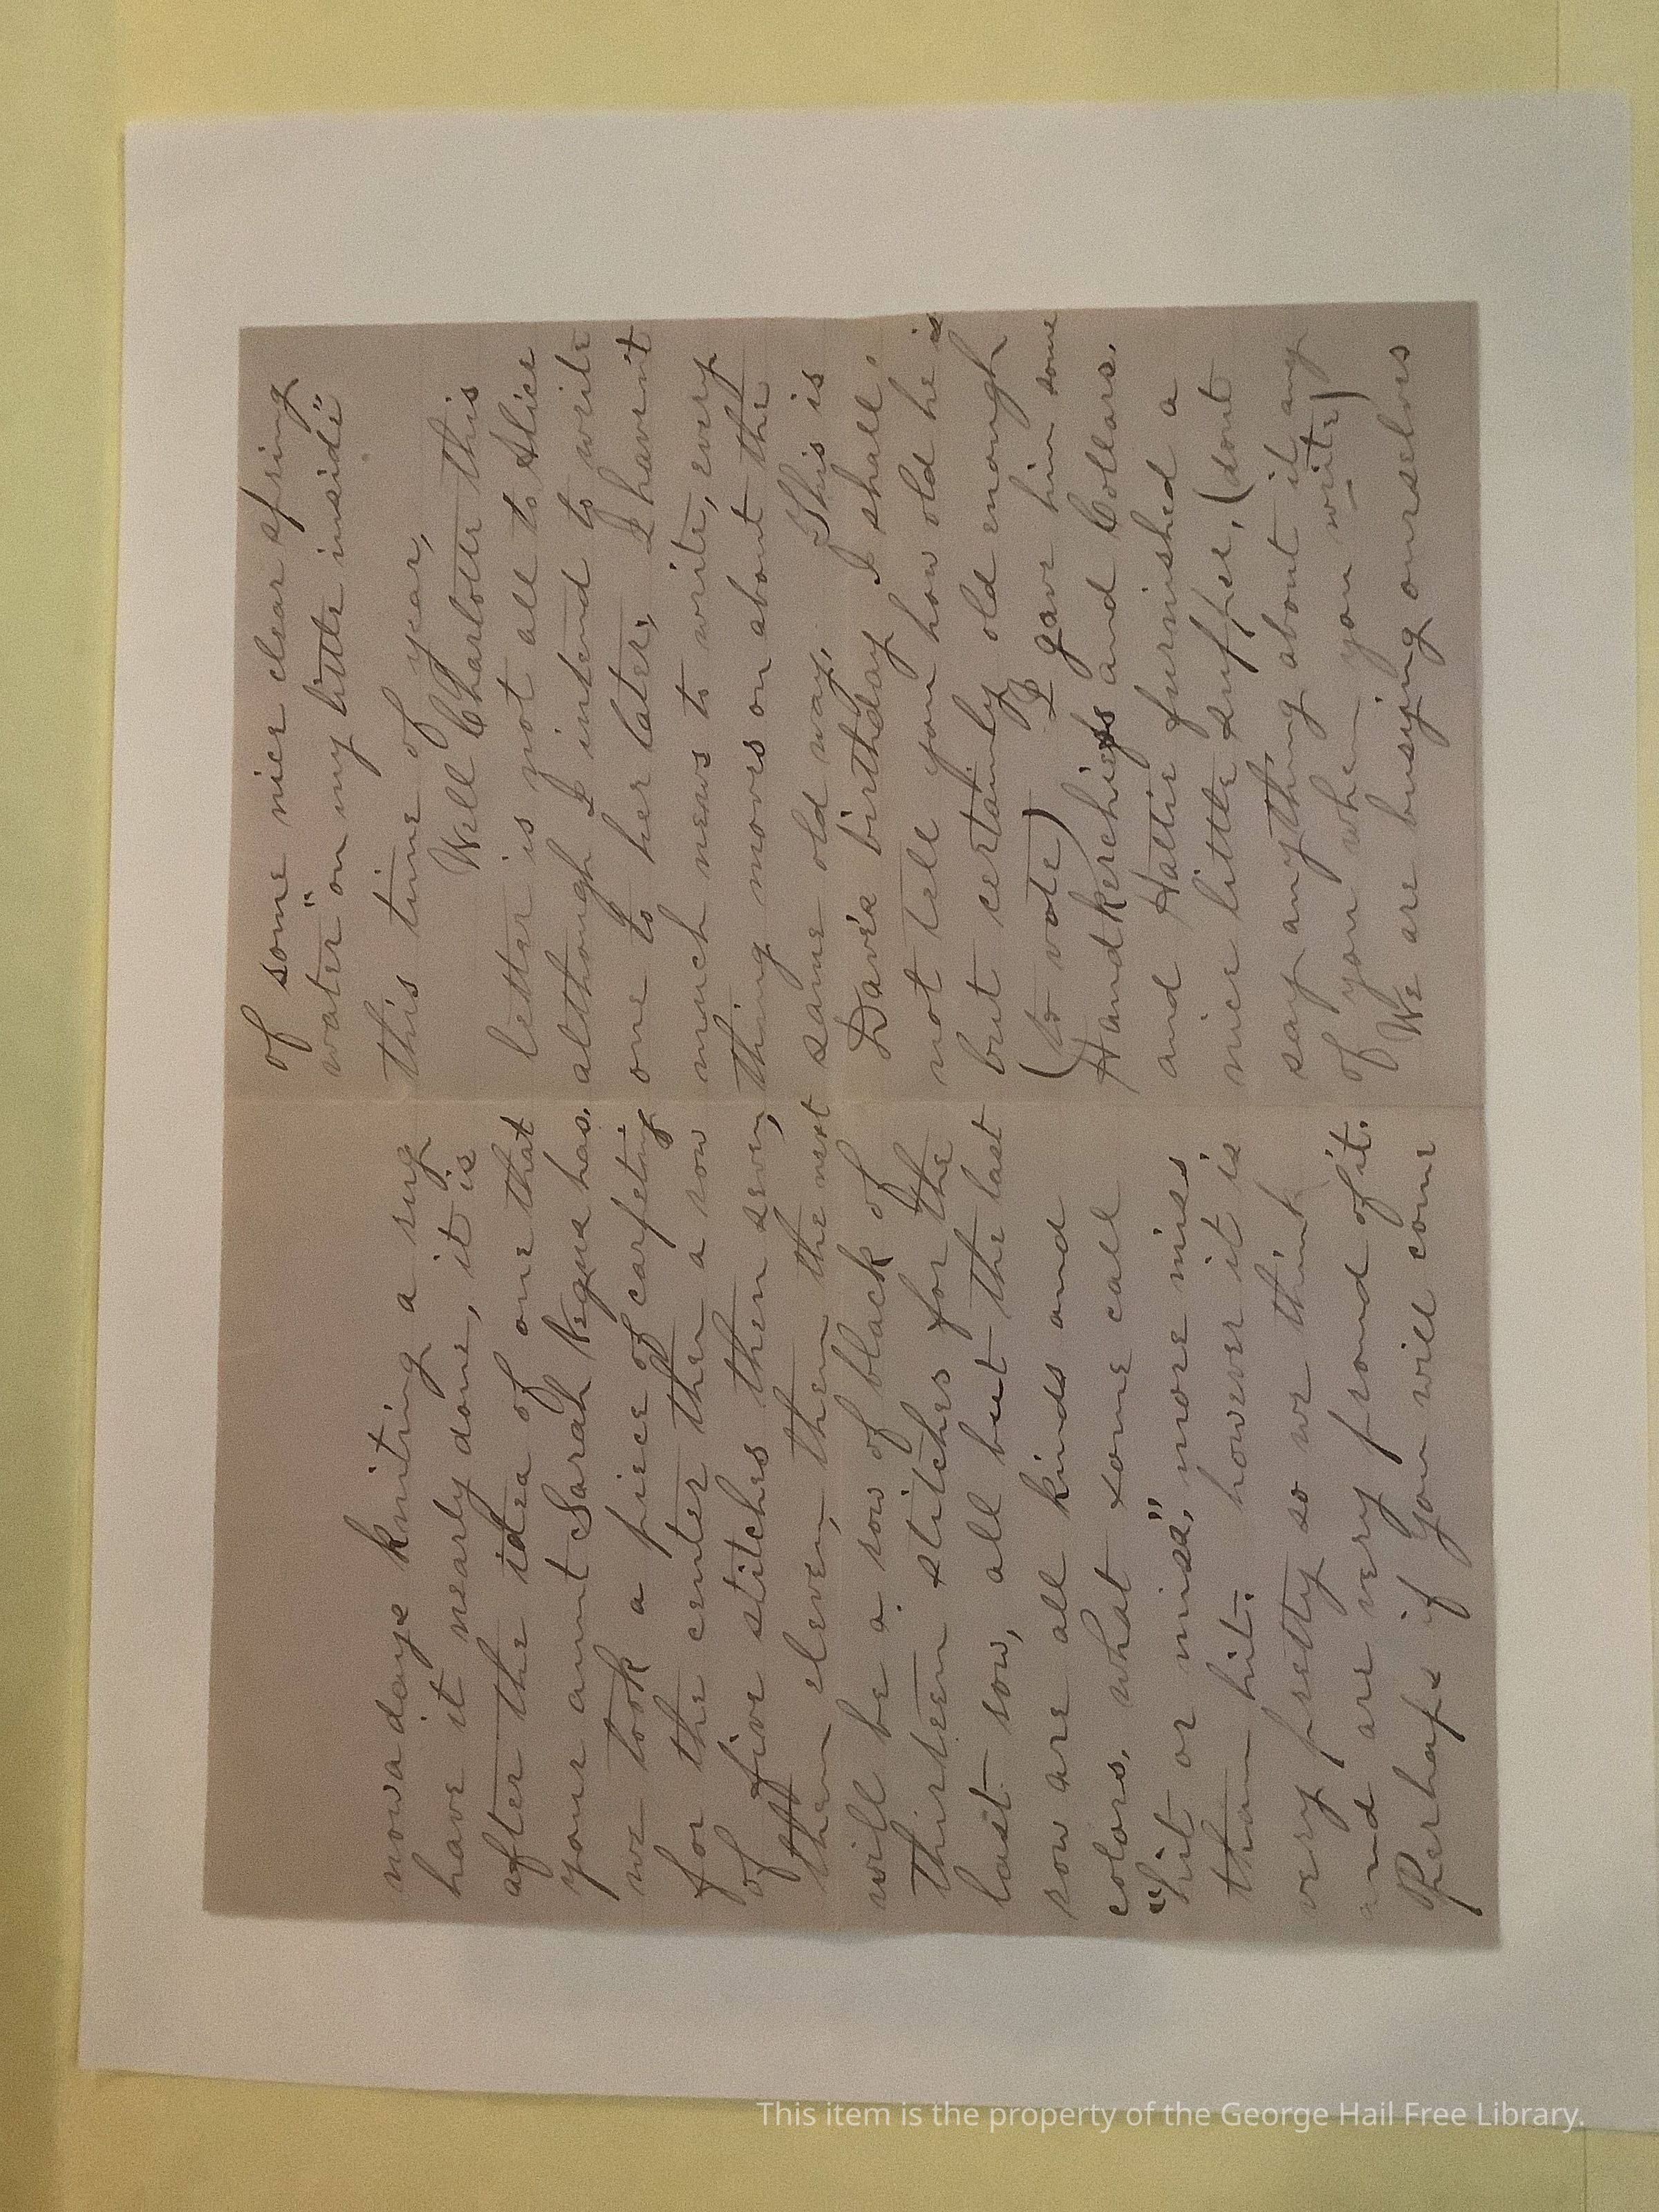 of some nice clear spring
water" on my little inside"
this time of year,
Well Charlotte this
letter is not all to Alice
although I intend to write
one to her later, I havent
much news to write, every
thing moves on about the
same old way. This is
Dave's birthday I shall
not tell you how old he is
but certainly old enough
(to vote) I gave him some
Handkerchiefs and Collars.
and Hattie furnished a
nice little supper, (dont
say anything about it any
of you when you write)
We are busying ourselves
now a days kniting a rug
have it nearly done, it is
after the idea of one that
your aunt Sarah Negus has.
we took a piece of carpeting
for the center then a row
of five stitches then seven,
then eleven, then the next
will be a row of black of
thirteen stitches for the
last row, all but the last
row are all kinds and
colors. what some call
"hit or miss," more miss
than hit. however it is
very pretty so we think
and are very proud of it.
Perhaps if you will come
This item is the property of the George Hail Free Library.